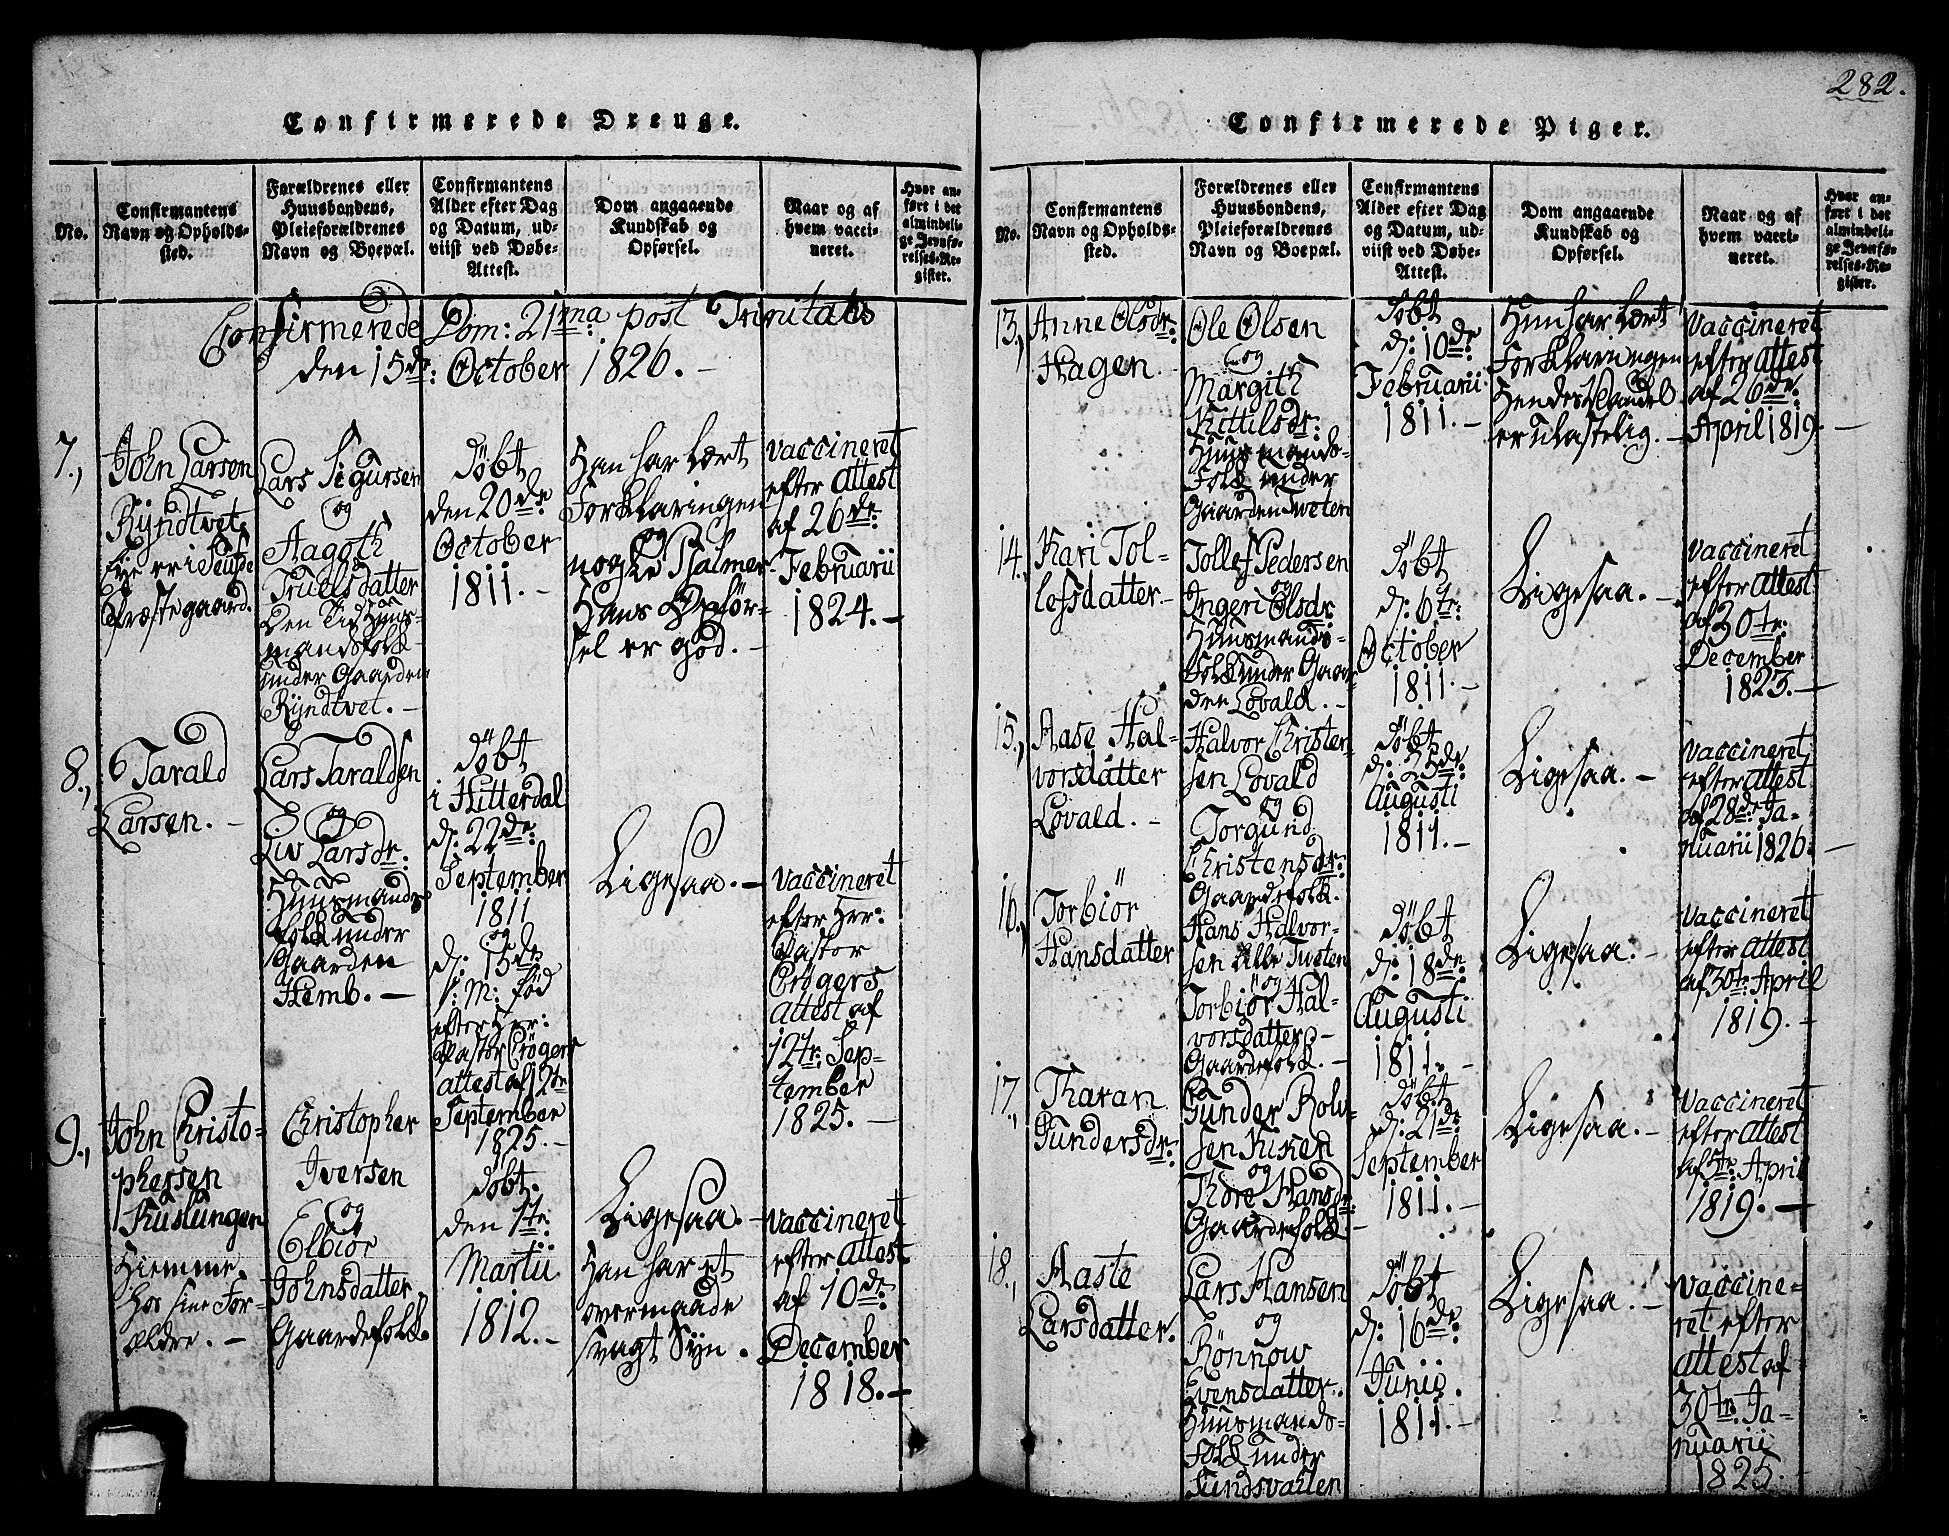 282.
Confirmerede Drenge.
No.
Confirmantens
Navn og Opholds-
sted.
Forældrenes eller
Huusbondens,
Pleieforældrenes
Navn og Boepæl.
Confirmantens
Alder efter Dag
og Datum, ud-
viist ved Døbe-
Attest.
Dom angaaende
Kundskab og
Opførsel.
Naar og af
hvem vacci-
neret.
Hvor an-
ført i det
almindeli-
ge Jevnfø-
relses-Re-
gister.
Confirmerede Dom: 21ma post Trinitatis
den 15de October 1826.
7.,
John Larsen
Rÿndtvet
Præstegaard.
Lars Sigursen
og
Aagoth
Truelsdatter
den Tid Huus-
mandsfolk
under Gaarden
Rÿndtvet.
Döbt
den 20de
October
1811.
Han har lært
Forklaringen
og
nogle Psalmer
Hans Opför-
sel er god.
vaccineret
efter attest
af 26de
Februarii
1824.
8.,
Tarald
Larsen.
Lars Taraldsen
og
Liv Larsdr:
Huusmands
folk under
Gaarden
Hemb.
döbt
i Hitterdal
d: 22de
September
1811
og
d: 15de
s: M: föd
efter Her:
Pastor Crögers
attest af 12te
September
1825.
Ligesaa.
vaccineret
efter Her:
Pastor
Crögers
attest af
12te Sep-
tember
1825.
9.,
John Christo-
phersen
Kuslungen
Hiemme
hos sine For-
ældre.
Christopher
Iversen
og
Elbiör
Johnsdatter
Gaardefolk.
döbt.
den 1te
Martii
1812.
Ligesaa.
Han har et
overmaade
svagt Sÿn.
vaccineret
efter attest
af 10de
December
1818.
Confirmerede Piger.
No.
Confirmantens
Navn og Opholds-
sted.
Forældrenes eller
Huusbondens,
Pleieforældrenes
Navn og Boepæl.
Confirmantens
Alder efter Dag
og Datum, ud-
viist ved Døbe-
Attest.
Dom angaaende
Kundskab og
Opførsel.
Naar og af
hvem vacci-
neret.
Hvor an-
ført i det
almindeli-
ge Jevnfø-
relses-Re-
gister.
13.,
Anne Olsdr:
Hagen
Ole Olsen
og
Margith
Kittilsdr:
Huusmands-
folk under
Gaarden Tweten
döbt
d: 10de
Februarii
1811.
Hun har lært
Forklaringen
Hendes Vandel
er ulastelig.
vaccineret
efter attest
af 26de
April 1819.
14.,
Kari Tol-
lefsdatter
Tollef Pedersen
og
Ingeri Olsdr:
Huusmands-
folk under Gaar-
den Lovald.
döbt
d: 6te
October
1811.
Ligesaa.
vaccineret
efter attest
af 30te
December
1823.
15.,
Aase Hal-
vorsdatter
Lovald.
Halvor Christen-
sen Lovald
og
Torgund
Christensdr:
Gaardefolk.
döbt
d: 25de
Augusti
1811.
Ligesaa.
vaccineret
efter attest
af 28de Ja-
nuarii 1826.
16.,
Torbiör
Hansdatter
Hans Halvor-
sen Lille Tweten
og
Torbiör Hal-
vorsdatter
Gaardefolk.
Döbt
d: 18de
Augusti
1811.
Ligesaa.
vaccineret
efter attest
af 30te April
1819.
17.,
Tharan
Gundersdr:
Gunder Rolv-
sen
og
Thore Hansdr:
Gaardefolk
döbt.
d: 21de
September
1811.
Ligesaa.
vaccineret
efter attest
af 5te April
1819.
18.,
Aaste
Larsdatter.
Lars Hansen
og
Rönnow
Evensdatter.
Huusmands-
folk under
Sundsvahlen
döbt
d: 16de
Junii.
1811.
Ligesaa.
vaccine-
ret efter
attest af
30te Ja-
nuarii
1825.